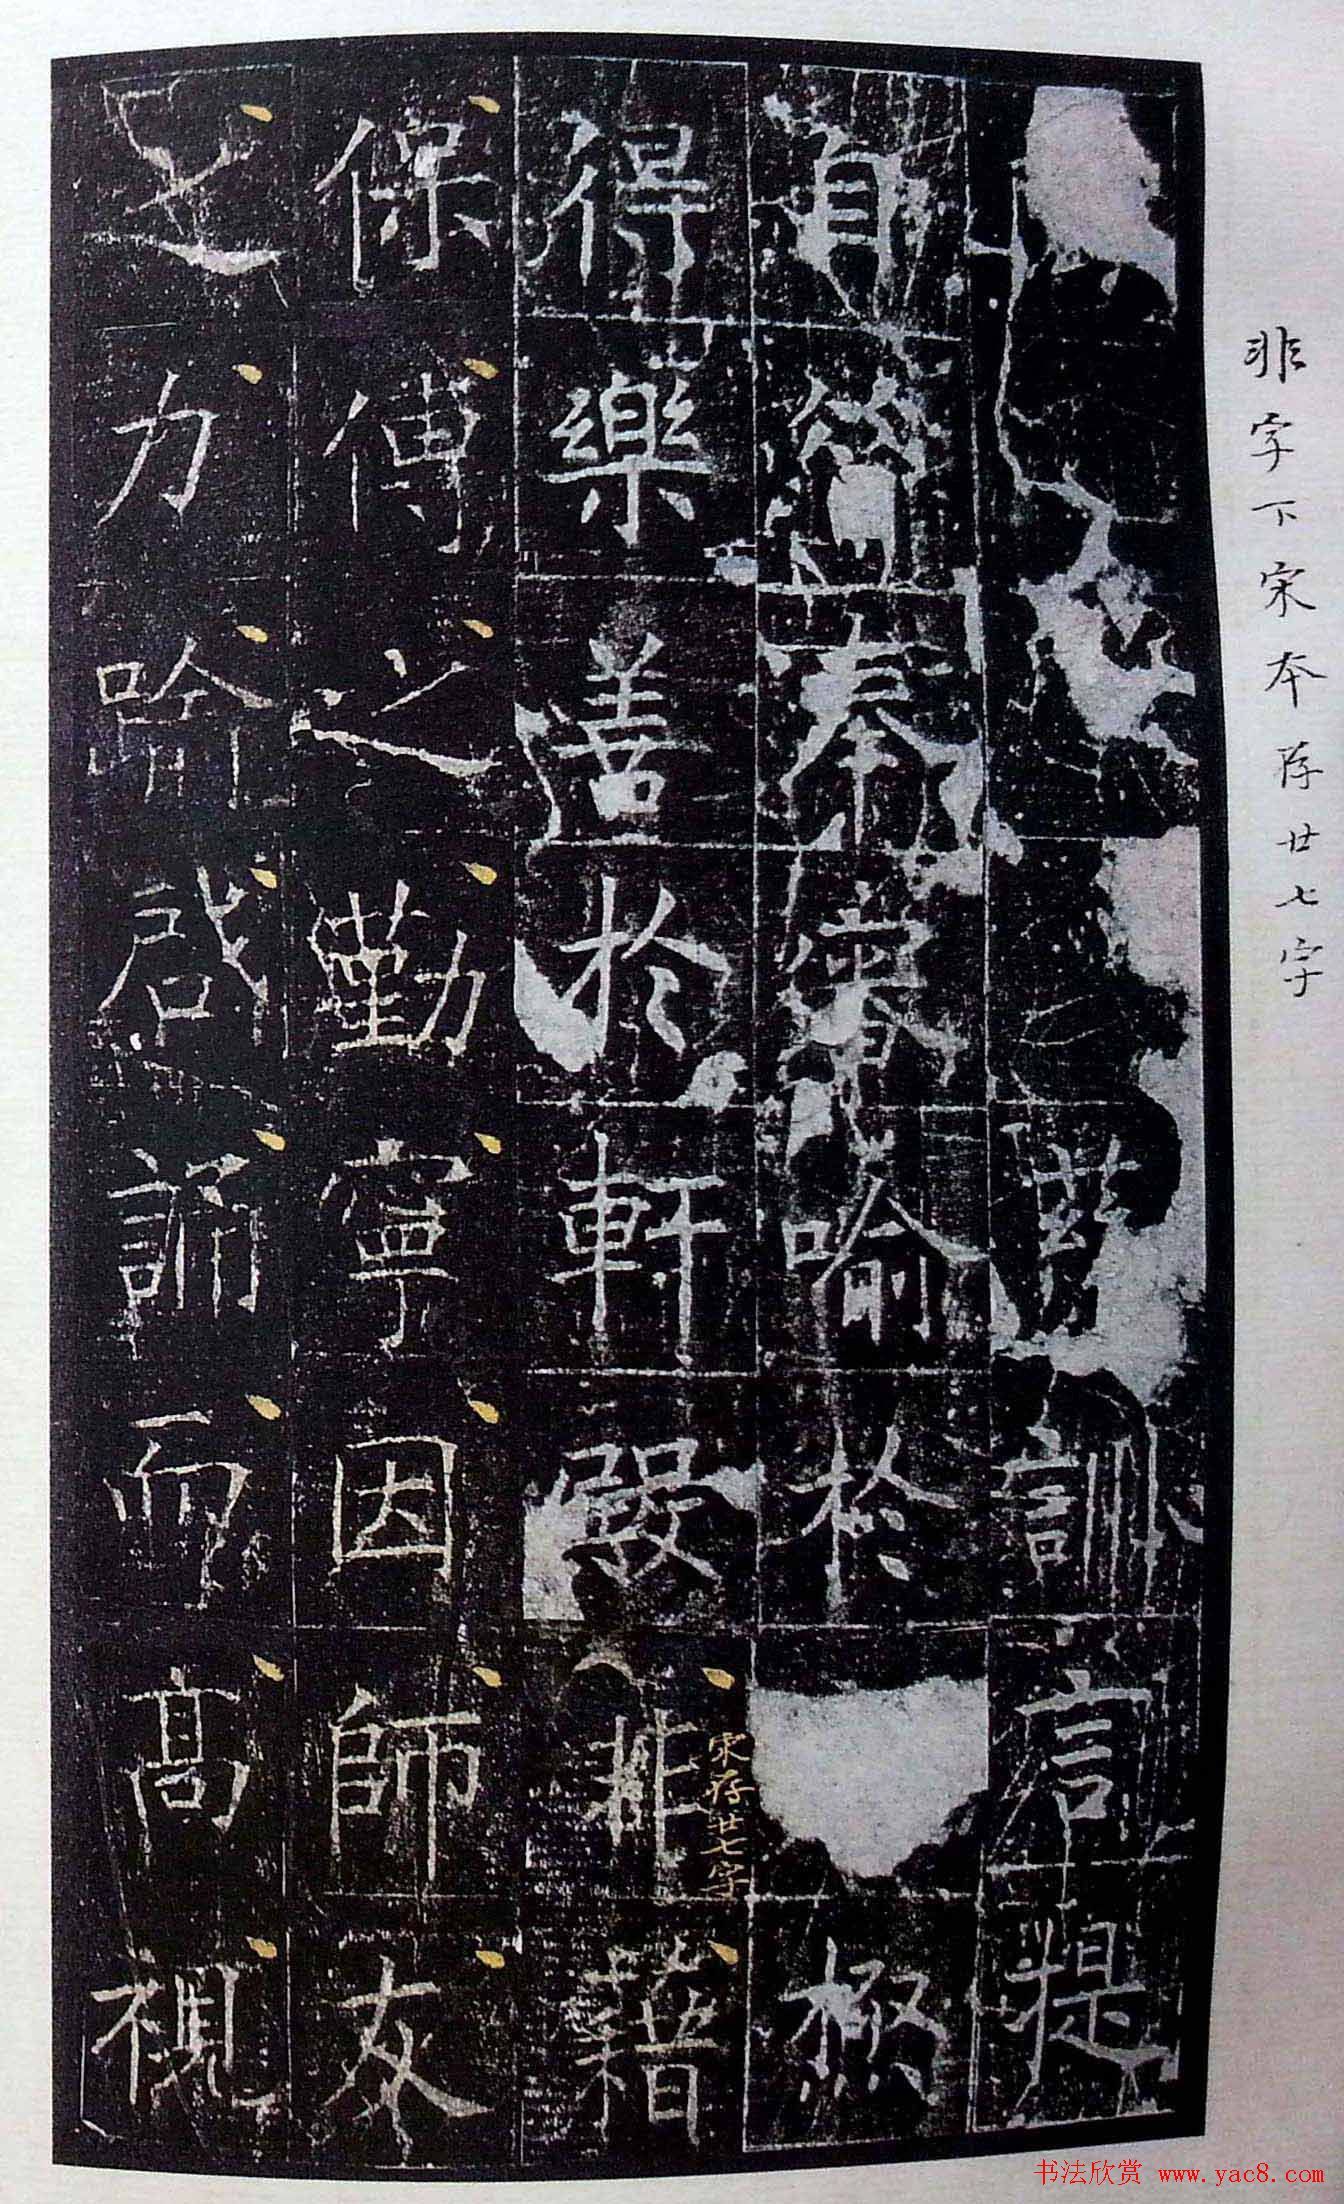 非字下宋本存廿七字
茲訓言提
身奉睿喻於極
得樂善於軒殿非藉
宋存廿七字
保傅之勤寧因師友
之力踰啓誦而高視
书法欣赏 www.yac8.com